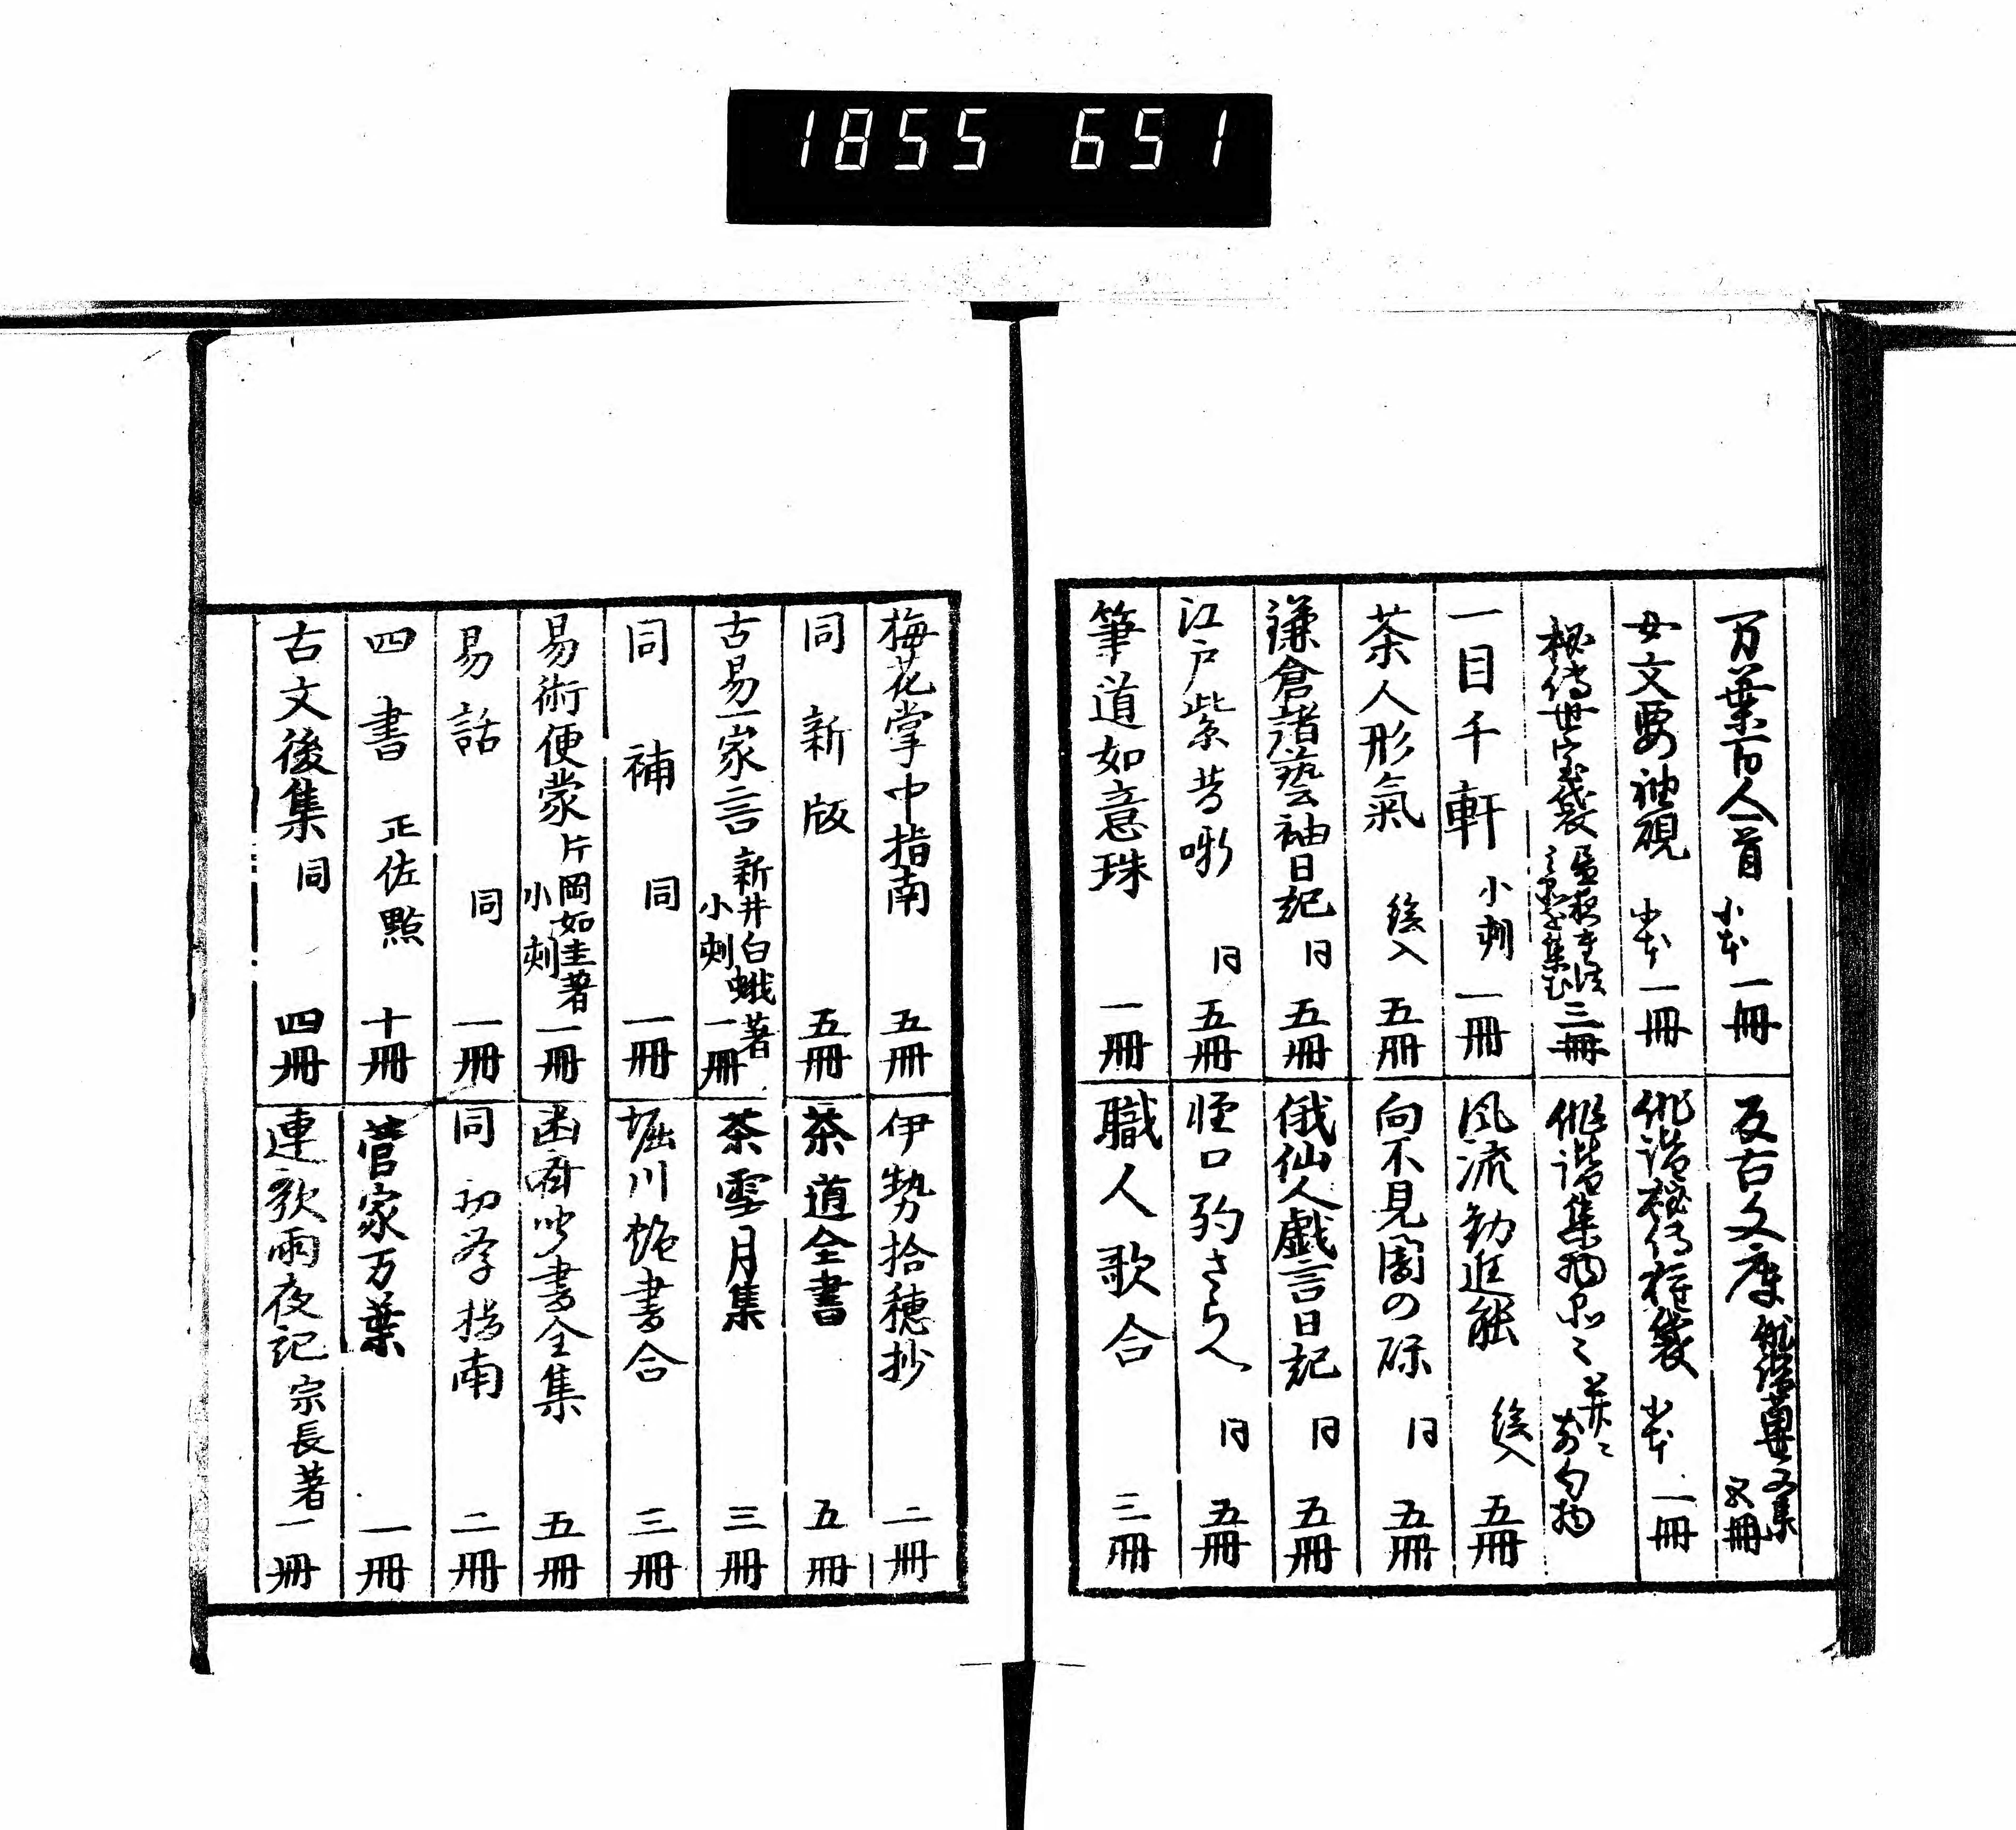 1855 651
万葉百人一首 小本 一冊
女文要袖硯 小本 一冊
秘伝世宝袋 三冊
一目千軒 小刻 一冊
茶人形氣 絵入 五冊
謙倉諸藝袖日記 同 五冊
江戸紫昔噺 同 五冊
筆道如意珠 一冊
反古文庫
俳諧秘伝 小本 一冊
俳諧集物品々
風流勧進能 絵入 五冊
向不見闇の礫 同 五冊
俄仙人戯言日記 同 五冊
同 五冊
職人歌合 三冊
梅花掌中指南 五冊
同新版 五冊
古易一家言 新井白蛾著 小刻 一冊
同補 同 一冊
易術便蒙 片岡如圭著 小刻 一冊
易話 同 一冊
四書 正佐點 十冊
古文後集 同 四冊
伊勢拾穂抄 二冊
茶道全書 五冊
茶雪月集 三冊
堀川艶書合 三冊
函斎叫書全集 五冊
同初学指南 二冊
菅家万葉 一冊
連歌雨夜記 宗長著 一冊